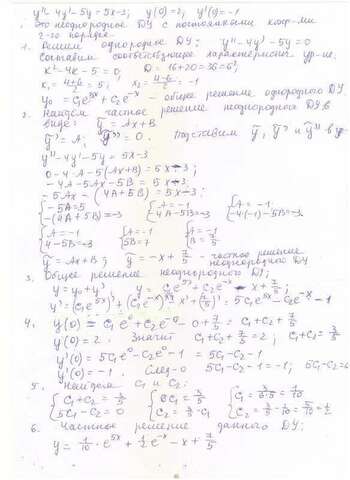 y''-4y'-5y=5x-3; y(0)=2; y'(0)=-1
Это неоднородное ДУ с постоянными коэф-ми
2-го порядка.
1. Решим однородное ДУ: y''-4y'-5y=0
Составим соответствующее характеристич. ур-ие.
k²-4k-5=0; D=16+20=36=6²
k₁=(4+6)/2=5; x₂=(4-6)/2=-1
y₀=C₁e^5x+C₂e^-x - общее решение однородного ДУ
2. Найдём частное решение неоднородного ДУ в
виде: y̅=Ax+B
y̅'=A; y̅''=0. Подставим y̅, y̅' и y̅'' в ур-
y''-4y'-5y=5x-3
0-4·A-5(Ax+B)=5x-3;
-4A-5Ax-5B=5x-3;
-5Ax-(4A+5B)=5x-3:
{-5A=5 {A=-1 {A=-1
-(4A+5B)=-3 -4A-5B=-3 -4·(-1)-5B=-3
{A=-1 {A=-1 {A=-1
4-5B=-3 5B=7 B=7/5
y̅=Ax+B; y̅=-x+7/5 - частное решение
неоднородного ДУ
3. Общее решение неоднородного ДУ:
y=y₀+y̅; y=C₁e^5x+C₂e^-x-x+7/5;
y'=(C₁e^5x)'+(C₂e^-x)'-x'+(7/5)'=5C₁e^5x-C₂e^-x-1
4. y(0)=C₁e⁰+C₂e⁰-0+7/5=C₁+C₂+7/5
y(0)=2. Значит C₁+C₂+7/5=2; C₁+C₂=3/5
y'(0)=5C₁e⁰-C₂e⁰-1=5C₁-C₂-1
y'(0)=-1. След-о 5C₁-C₂-1=-1; 5C₁-C₂=0
5. Найдём C₁ и C₂:
{C₁+C₂=3/5 {6C₁=3/5 {C₁=3/(6·5)=1/10
5C₁-C₂=0 C₂=3/5-C₁ C₂=3/5-1/10=5/10=1/2
6. Частное решение данного ДУ:
y=1/10·e^5x+1/2e^-x-x+7/5